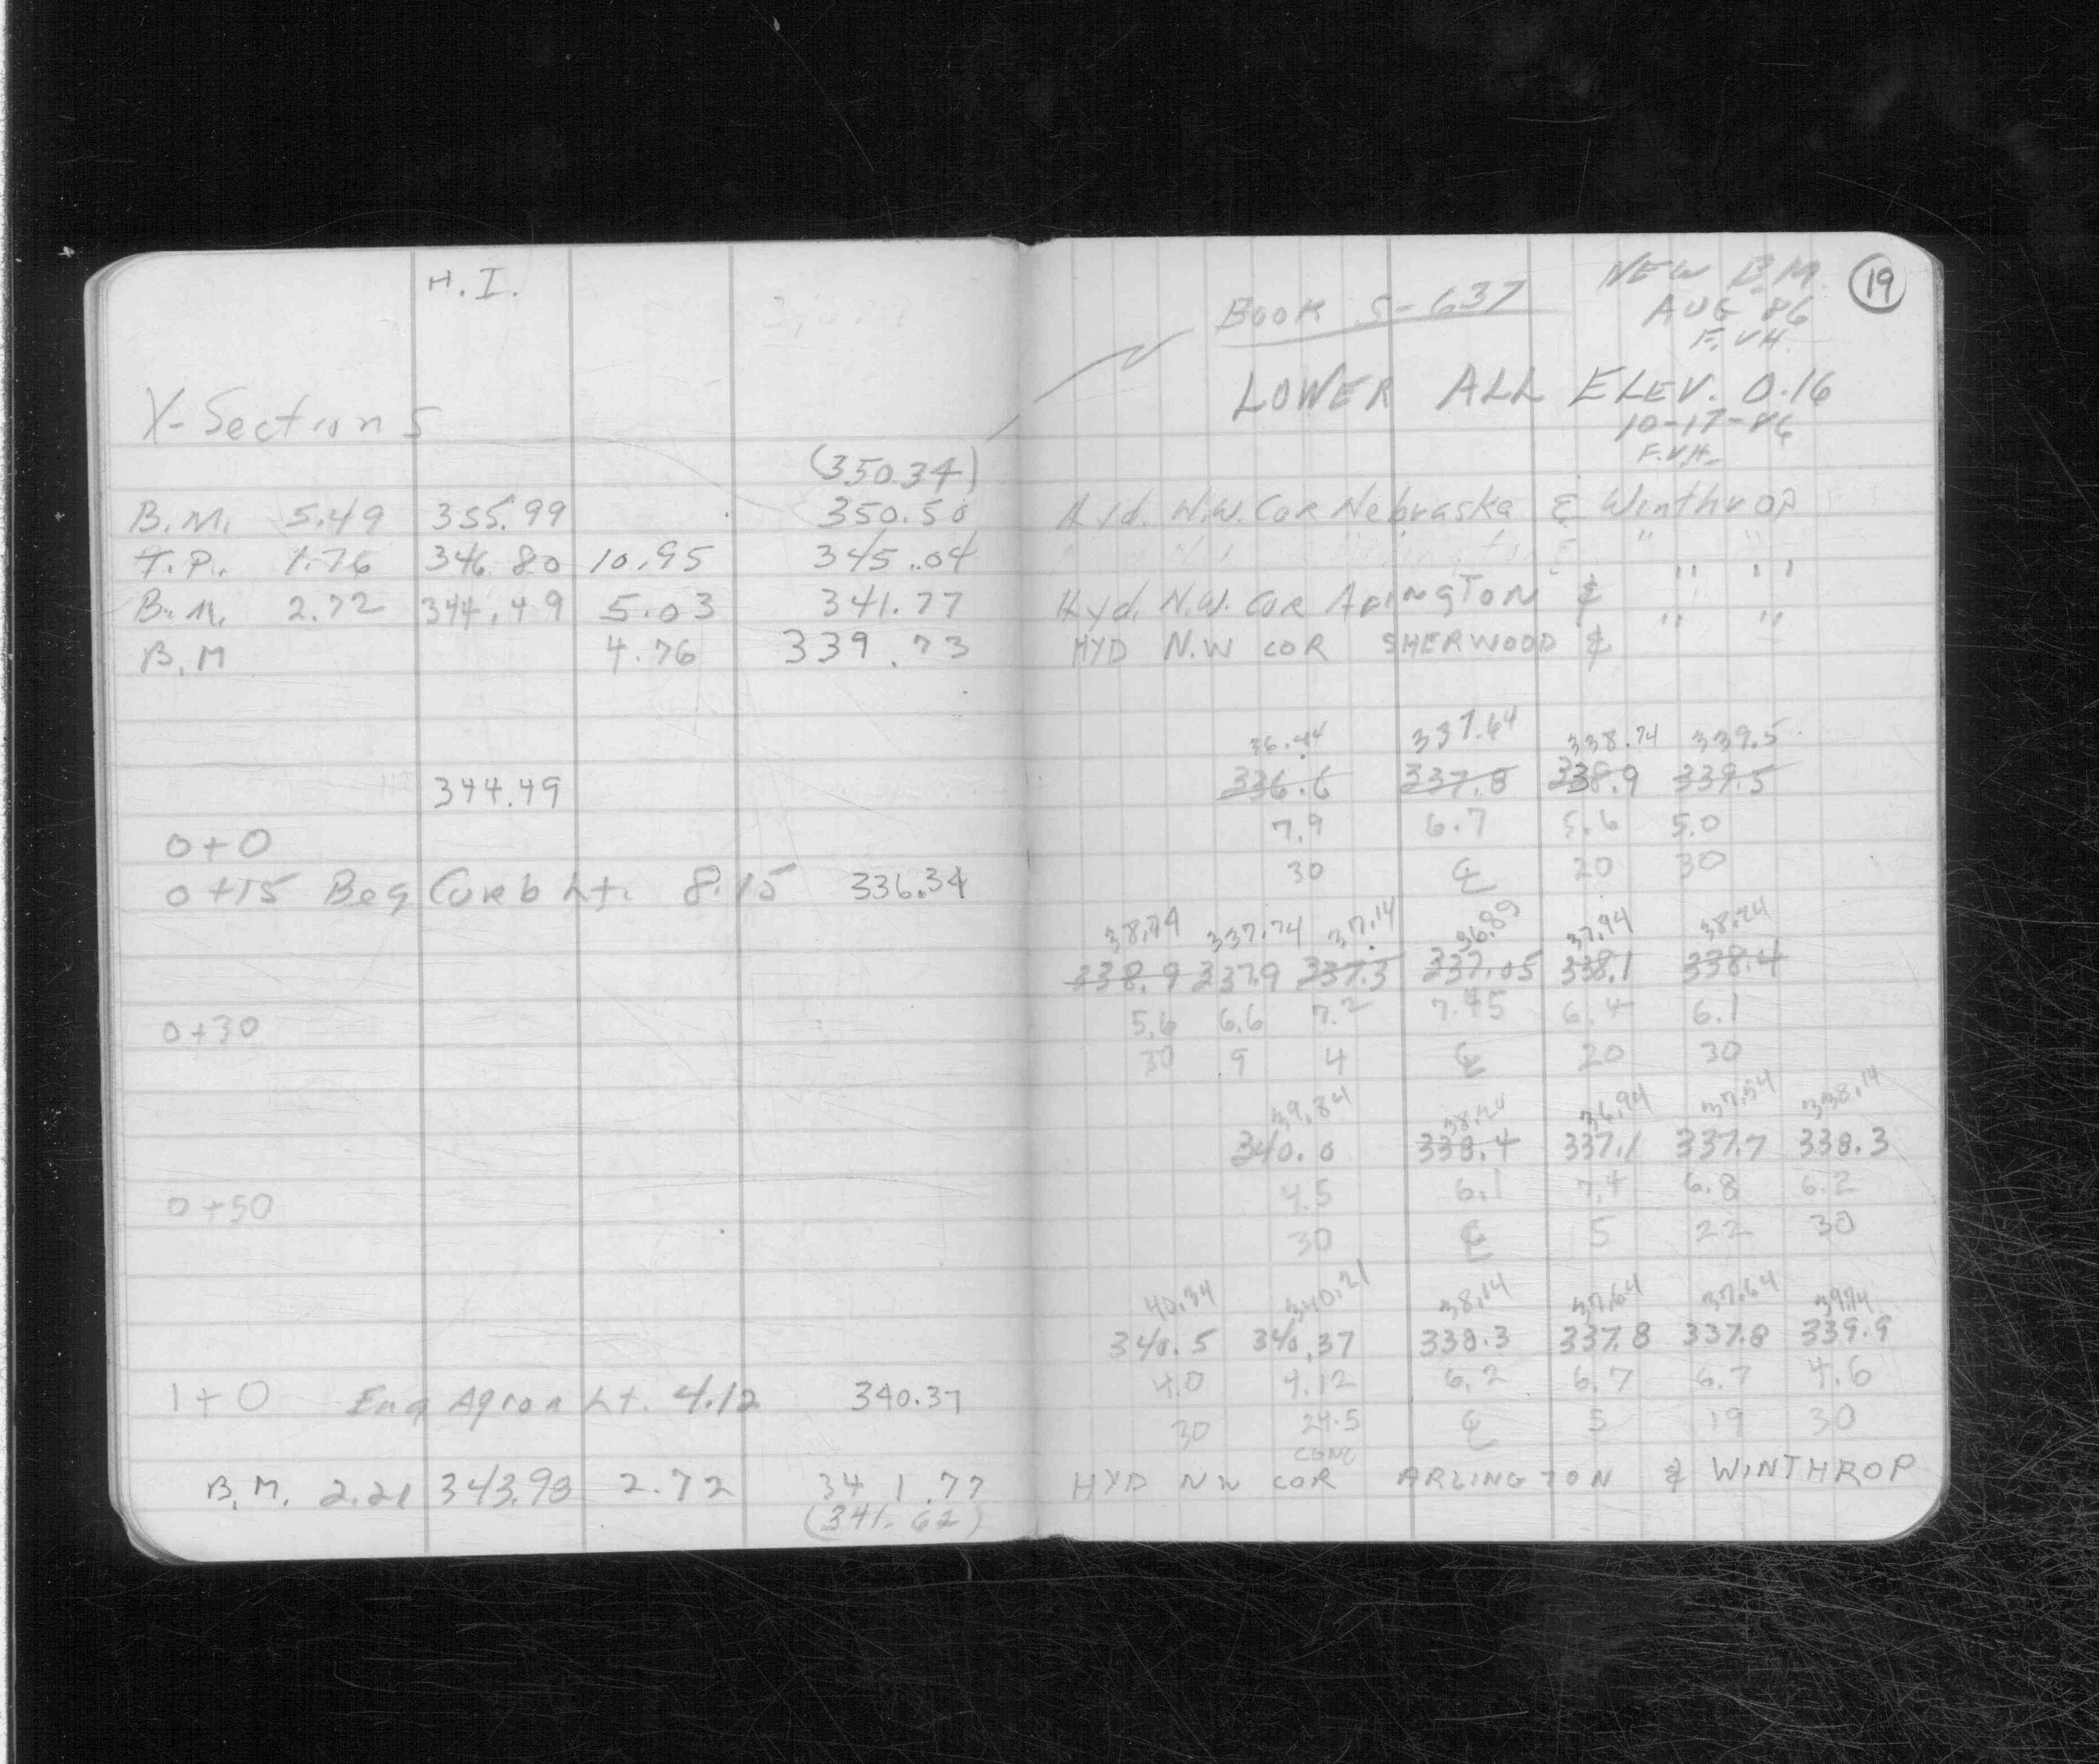 H.I.
X-Sections
(350.34)
B.M. 5.49 355.99 350.50
T.P. 1.76 346.80 10.95 345.04
B.M. 2.72 344.49 5.03 341.77
B.M 4.76 339.73
344.49
0+0
0+15 Beg Curb Lt. 8.15 336.34
0+30
0+50
1+0 End Apron Lt. 4.12 340.37
B.M. 2.21 343.98 2.72 341.77
(341.62)
19
NEW B.M.
BOOK S-637
AUG 86
F.V.H.
LOWER ALL ELEV. 0.16
10-17-86
F.V.H.
Hyd. N.W. Cor Nebraska & Winthrop
" "
Hyd. N.W. Cor Arington & " "
HYD N.W COR SHERWOOD & " "
36.44 337.64 338.74 339.5
336.6 337.8 338.9 339.5
7.9 6.7 5.6 5.0
30 ℄ 20 30
38.74 337.74 37.14 36.89 37.94 38.24
338.9 337.9 337.3 337.05 338.1 338.4
5.6 6.6 7.2 7.45 6.4 6.1
30 9 4 ℄ 20 30
39.84 38.24 36.94 37.54 338.14
340.0 338.4 337.1 337.7 338.3
4.5 6.1 7.4 6.8 6.2
30 ℄ 5 22 30
40.34 340.21 38.14 37.64 37.64 39.74
340.5 340.37 338.3 337.8 337.8 339.9
4.0 4.12 6.2 6.7 6.7 4.6
30 24.5 ℄ 5 19 30
CONC
HYD NW COR ARLINGTON & WINTHROP